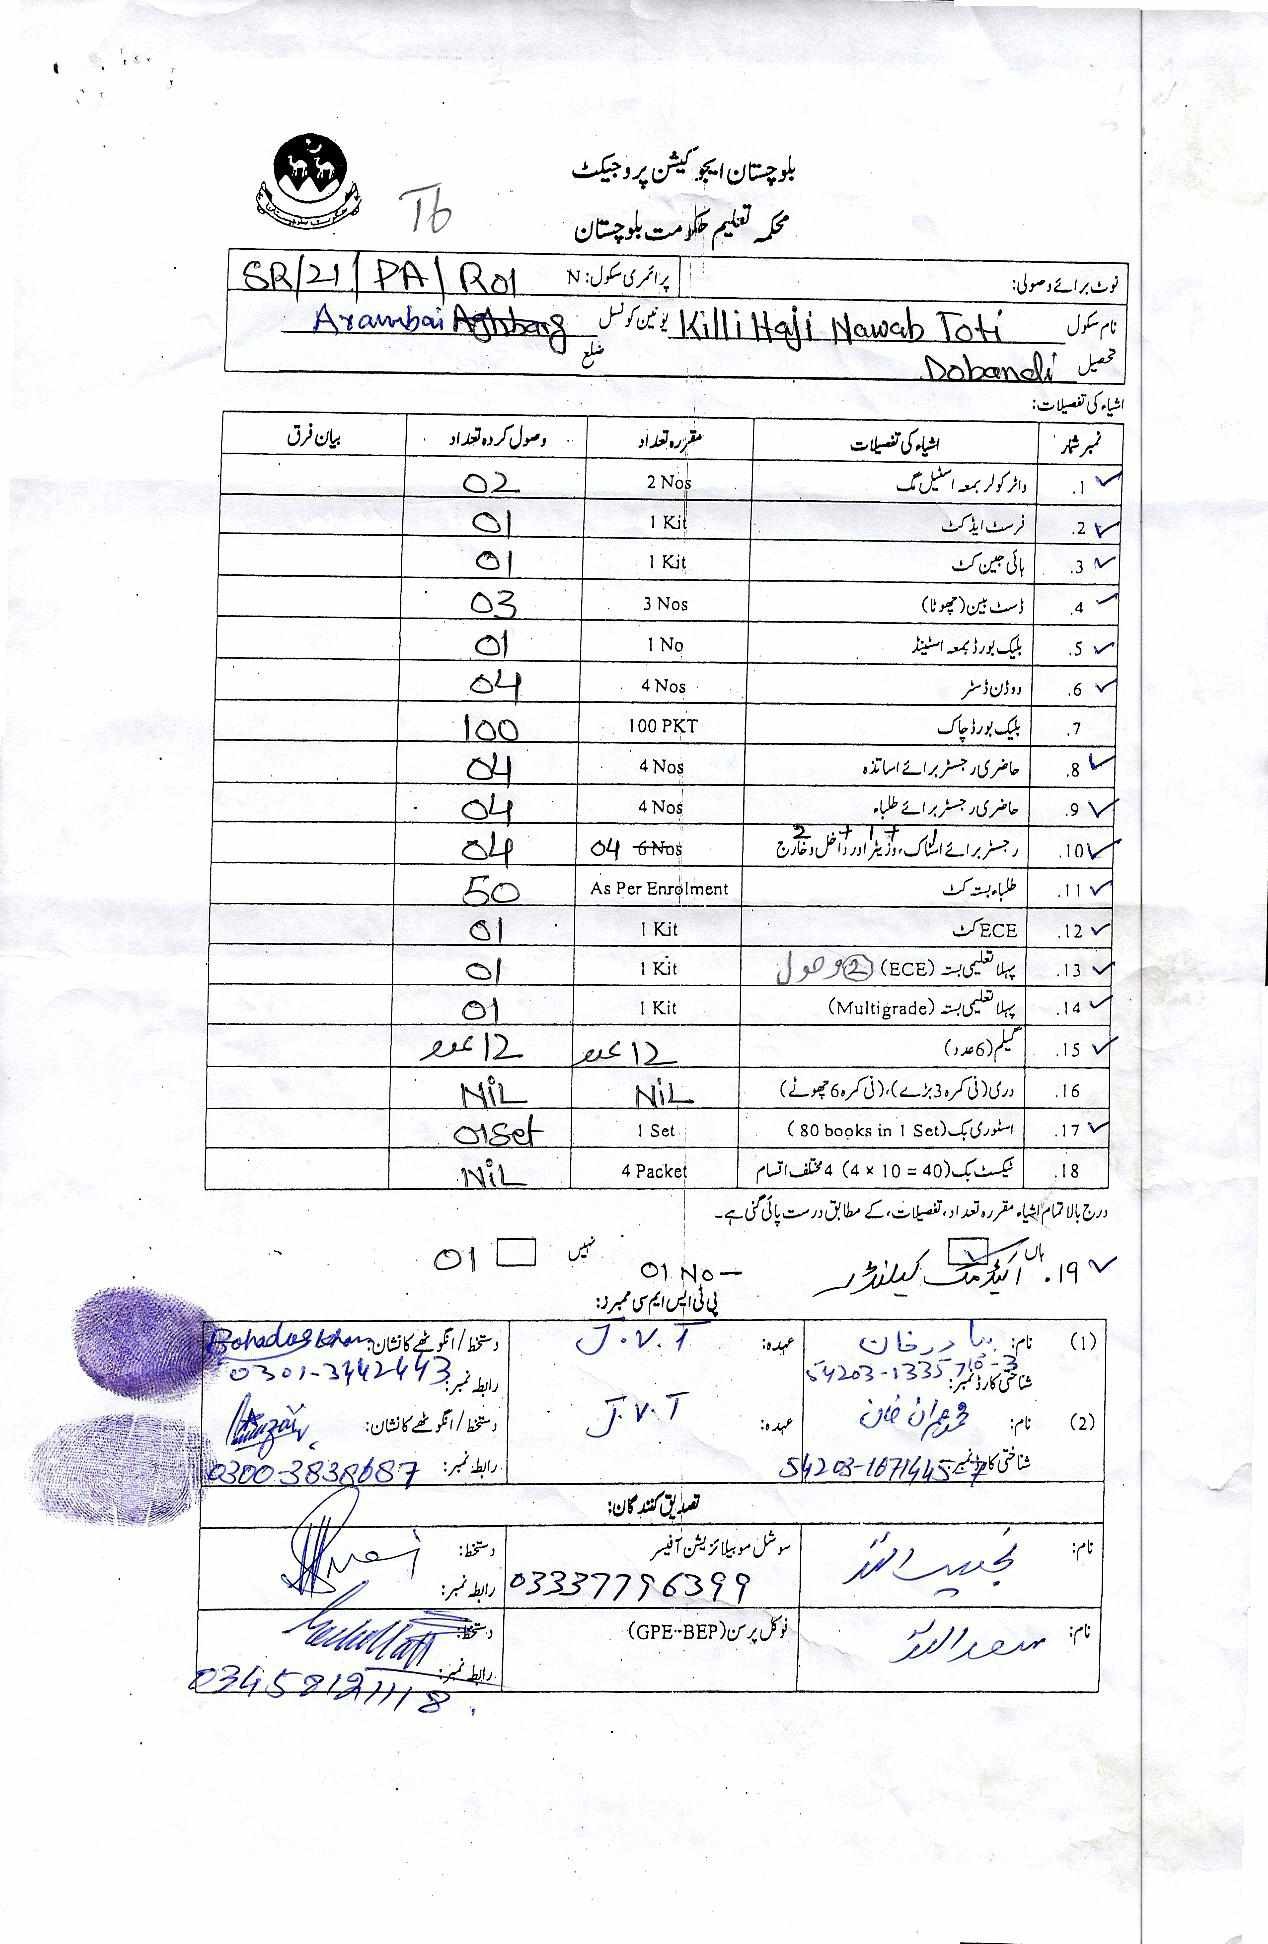 بلوچستان ایجوکیشن پروجیکٹ
محکمہ تعلیم حکومت بلوچستان
T6
نوٹ برائے وصولی: پرائمری سکول: N SR/21/PA/R01
نام سکول Killi Haji Nawab Toti یونین کونسل Arambai Aghberg
تحصیل Dobandi ضلع
اشیاء کی تفصیلات:
نمبر شمار اشیاء کی تفصیلات مقررہ تعداد وصول کردہ تعداد بیان فرق
1. واٹر کولر بمعہ اسٹیل مگ 2 Nos 02
2. فرسٹ ایڈ کٹ 1 Kit 01
3. ہائی جین کٹ 1 Kit 01
4. ڈسٹ بین (چھوٹا) 3 Nos 03
5. بلیک بورڈ بمعہ اسٹینڈ 1 No 01
6. ووڈن ڈسٹر 4 Nos 04
7. بلیک بورڈ چاک 100 PKT 100
8. حاضری رجسٹر برائے اساتذہ 4 Nos 04
9. حاضری رجسٹر برائے طلباء 4 Nos 04
2 + 1 + 1
10. رجسٹر برائے اسٹاک، وزیٹر اور داخل و خارج 6 Nos 04 04
11. طلباء بستہ کٹ As Per Enrolment 50
12. ECE کٹ 1 Kit 01
13. پہلا تعلیمی بستہ (ECE) 2 وصول 1 Kit 01
14. پہلا تعلیمی بستہ (Multigrade) 1 Kit 01
15. گلیم (6 عدد) 12 عدد 12 عدد
16. دری (فی کمرہ 3 بڑے)، (فی کمرہ 6 چھوٹے) NiL NiL
17. اسٹوری بک (80 books in 1 Set) 1 Set 01 Set
18. ٹیکسٹ بک (4 x 10 = 40) 4 مختلف اقسام 4 Packet NiL
درج بالا تمام اشیاء مقررہ تعداد، تفصیلات، کے مطابق درست پائی گئی ہے۔
ہاں نہیں
19. اکیڈمک کیلنڈر 01 No 01
پی ٹی ایس ایم سی ممبرز:
(1) نام: بہادر خان عہدہ: J.V.T دستخط/انگوٹھے کا نشان: Bahadur khan
شناختی کارڈ نمبر: 54203-1335710-3 رابطہ نمبر: 0301-3442443
(2) نام: محمد عمران خان عہدہ: J.V.T دستخط/انگوٹھے کا نشان:
شناختی کارڈ نمبر: 54203-1671445-7 رابطہ نمبر: 0300-3838687
تصدیق کنندگان:
نام: نجیب اللہ سوشل موبیلائزیشن آفیسر دستخط:
03337796399 رابطہ نمبر:
نام: سعد اللہ فوکل پرسن (GPE-BEP) دستخط:
رابطہ نمبر: 03458121118